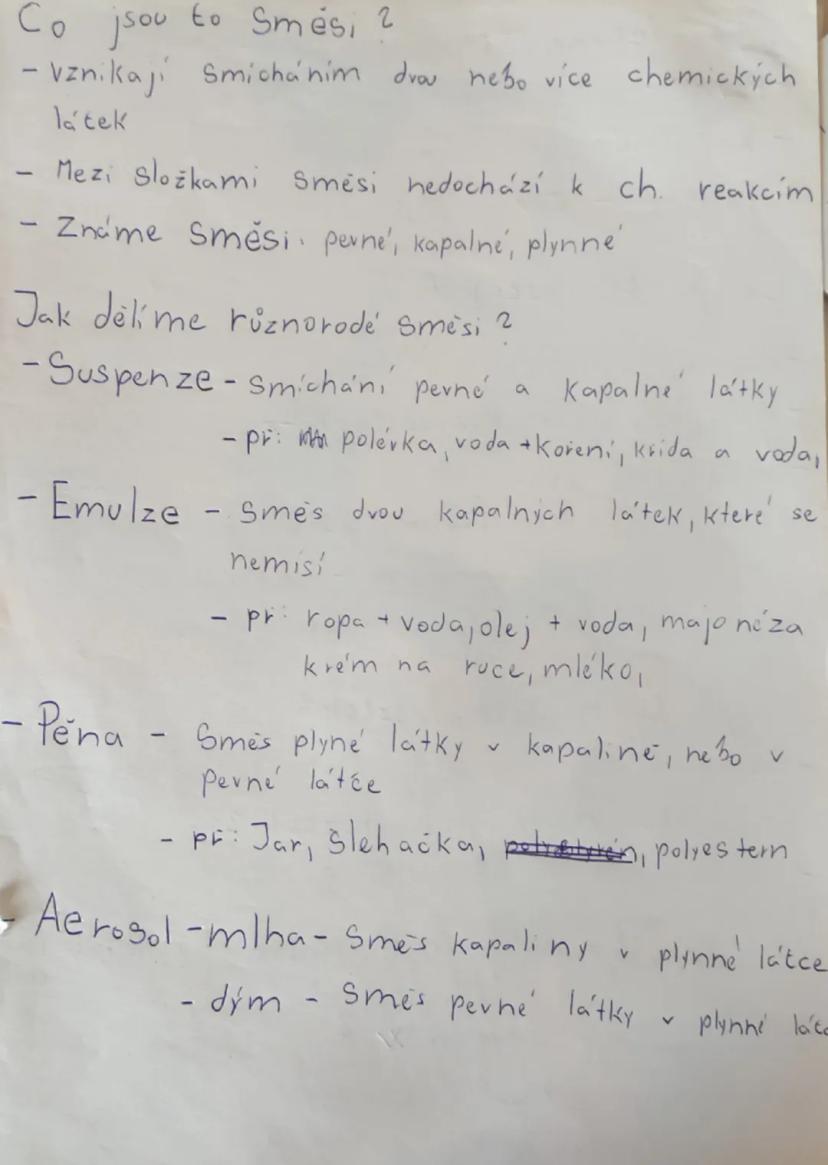 Co jsou to směsi?
- vznikají smícháním dvou nebo více chemických
látek
- Mezi složkami směsi nedochází k ch. reakcím
- Známe směsi. pevné, kapalné, plynné
Jak dělíme různorodé směsi?
- Suspenze - smíchání pevné a kapalné látky
- př: polévka, voda + koření, křída a voda,
- Emulze - směs dvou kapalných látek, které se
nemísí
- př: ropa + voda, olej + voda, majonéza
krém na ruce, mléko,
- Pěna - směs plyné látky v kapalině, nebo v
pevné látce
- př: Jar, šlehačka, polyestern
- Aerosol - mlha - směs kapaliny v plynné látce
- dým - směs pevné látky v plynné